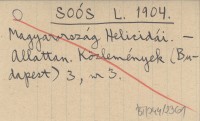 SOÓS L. 1904.
Magyarország Helicidái. –
Állattan. Közlemények (Bu-
dapest) 3, nr 3.